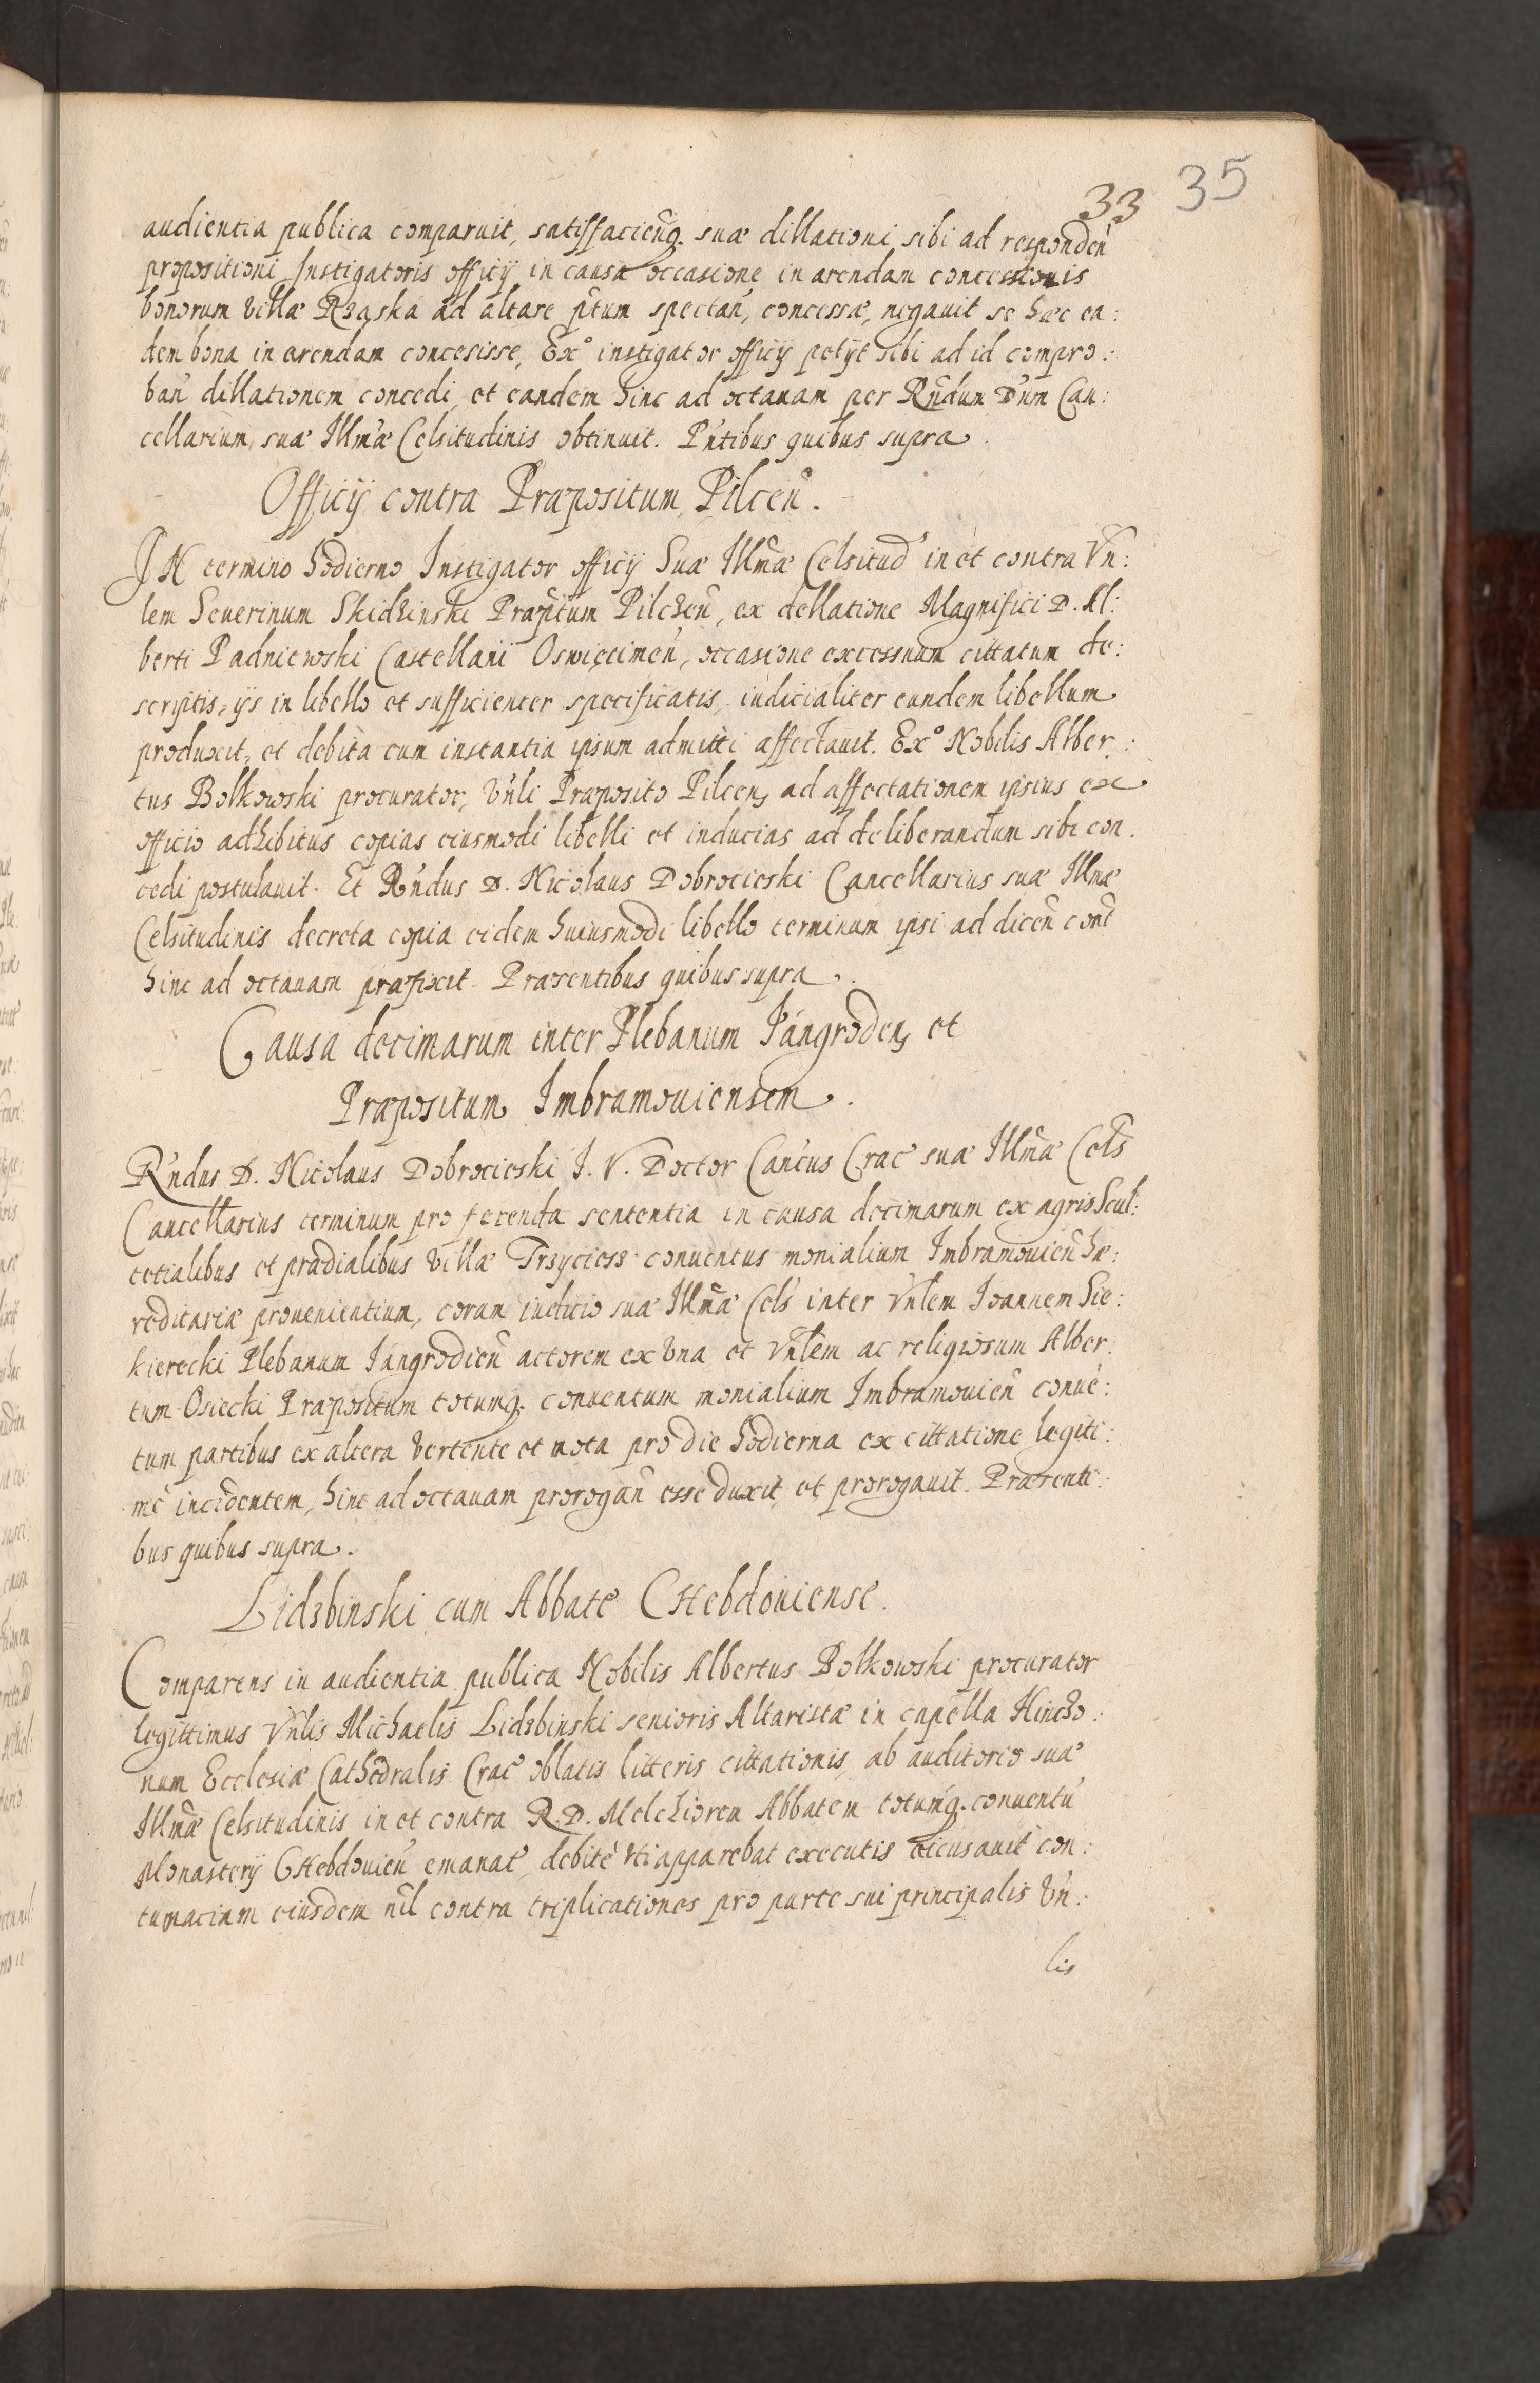 33 35
audientia publica comparuit, satisfacieñq. suæ dillationi sibi ad respondeñ
propositioni Instigatoris officij in causa occasione in arendam concessionis
bonorum villæ Rząska ad altare ptum spectañ, concessæ, negauit se hæc ea:
dem bona in arendam concesisse, Exº instigator officij petijt sibi ad id compro:
bañ dillationem concedi, et eandem hinc ad octauam per Rñdum Dñm Can:
cellarium suæ Illmæ Celsitudinis obtinuit. Pñtibus quibus supra.
Officij contra Præpositum Pilceñ.
IN termino hodierno Instigator officij Suæ Illmæ Celsitud in et contra Vn:
lem Seuerinum Skidzinski Præpitum Pilcheñ, ex dellatione Magnifici D. Al:
berti Padniewski Castellani Oswięcimeñ, occasione excessuum cittatum de:
scriptis, ijs in libello et sufficienter specificatis, iudicialiter eundem libellum
produxit, et debita cum instantia ipsum admitti affectauit. Exº Nobilis Alber:
tus Bolkowski procurator, Vnli Præposito Pilcen, ad affectationem ipsius ex
officio adhibitus copias eiusmodi libelli et inducias ad deliberandum sibi con.
cedi postulauit. Et Rñdus D. Nicolaus Dobrocieski Cancellarius suæ Illmæ
Celsitudinis decreta copia eidem huiusmodi libello terminum ipsi ad diceñ cont
hinc ad octauam præfixit. Præsentibus quibus supra.
Causa decimarum inter Plebanum Jangroden, et
Præpositum Imbramouiensem.
Rñdus D. Nicolaus Dobrocieski J. V. Doctor Cancus Crac suæ Illmæ Cels
Cancellarius terminum pro ferenda sententia in causa decimarum ex agris Scul:
tetialibus et prædialibus villæ Trzyciesz conuentus monialium Imbramouieñ hæ:
reditariæ prouenientium, coram iudicio suæ Illmæ Cels inter Vnlem Joannem Sie:
kierecki Plebanum Jangrodieñ actorem ex vna et Vnlem ac religiosum Alber:
tum Osiecki Præpositum totumq. conuentum monialium Imbramouieñ conue:
tum partibus ex altera vertente et mota pro die hodierna ex cittatione legiti:
mè incidentem, hinc ad octauam prorogañ esse duxit, et prorogauit. Præsenti:
bus quibus supra.
Lidzbinski cum Abbate CHebdouiense.
Comparens in audientia publica Nobilis Albertus Bolkowski procurator
legittimus Vnlis Michaelis Lidzbinski senioris Altaristæ in capella Hinczo:
num Ecclesiæ Cathedralis Crac oblatis litteris cittationis, ab auditorio suæ
Illmæ Celsitudinis in et contra R. D. Melchiorem Abbatem totumq. conuentu
Monasterij CHebdouieñ emanat, debitè vti apparebat executis accusauit con:
tumaciam eiusdem nil contra triplicationes pro parte sui principalis Vn:
lis